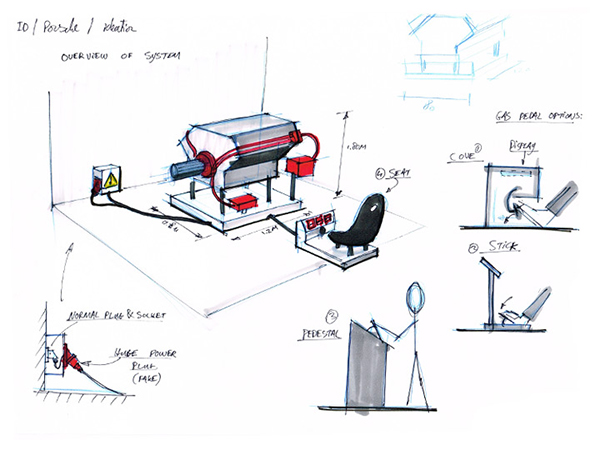 ID / Porsche / ideation
OVERVIEW OF SYSTEM
GAS PEDAL OPTIONS:
Display
① COVE
1.80M
④ SEAT
1.2M
② STICK
③
PEDESTAL
NORMAL PLUG & SOCKET
HUGE POWER
PLUG
(FAKE)